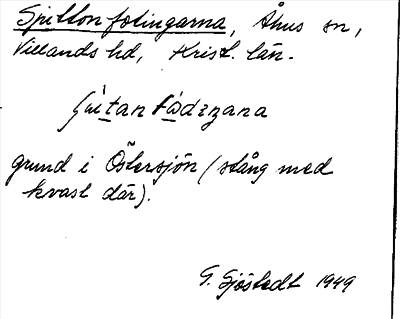 Spitton fotingarna, Åhus sn,
Villands hd, Krist. län.
grund i Östersjön (stång med
kvast där).
G. Sjöstedt 1949